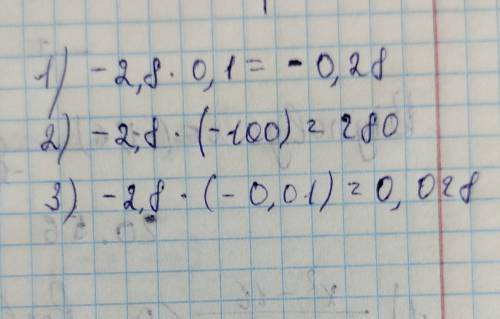 1) -2,8 · 0,1 = -0,28
2) -2,8 · (-100) = 280
3) -2,8 · (-0,01) = 0,028